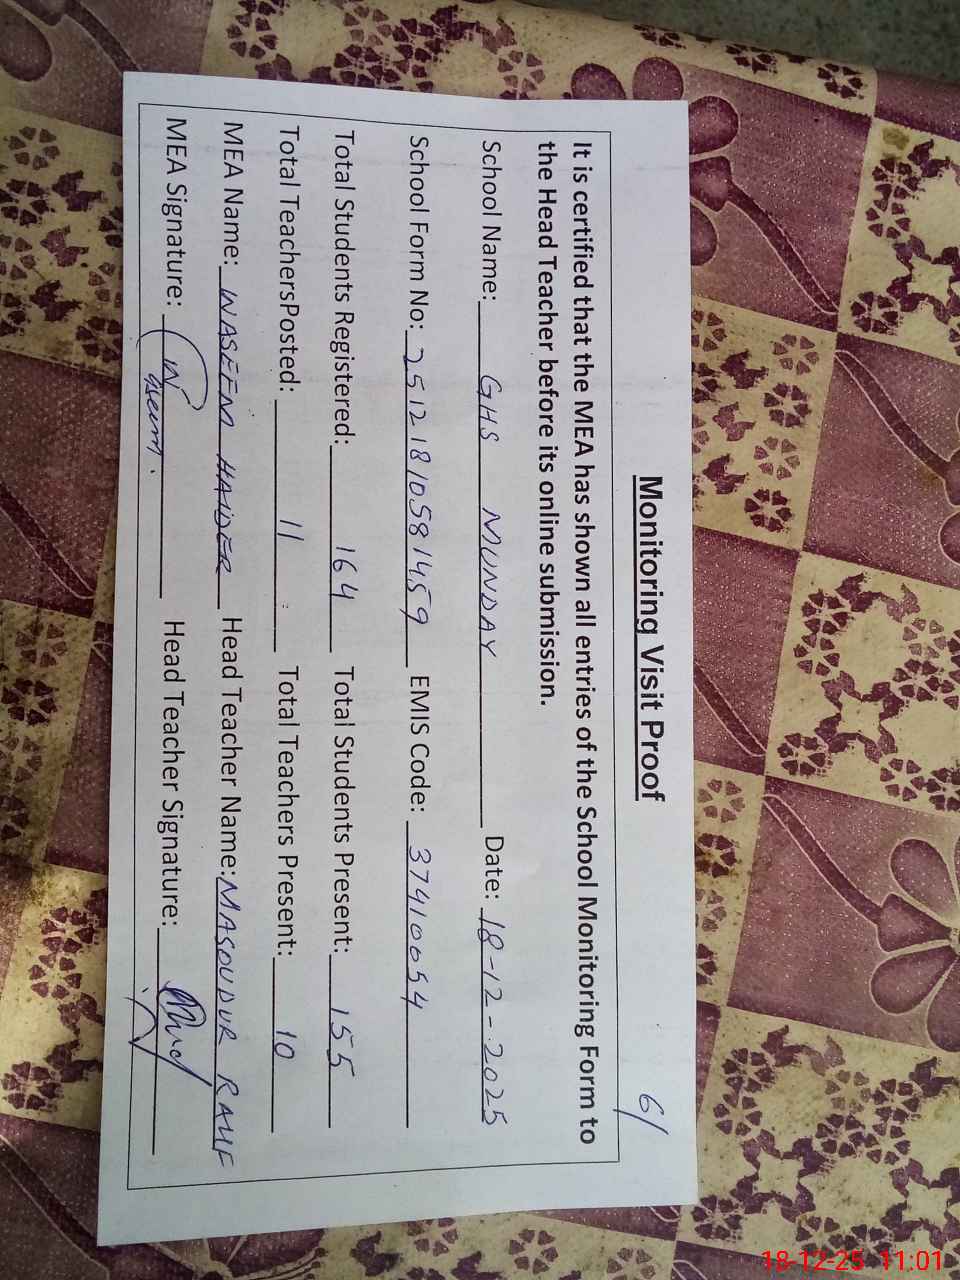 6/
Monitoring Visit Proof
It is certified that the MEA has shown all entries of the School Monitoring Form to
the Head Teacher before its online submission.
School Name: GHS MUNDAY Date: 18-12-2025
School Form No: 25121810581459 EMIS Code: 37410054
Total Students Registered: 164 Total Students Present: 155
Total TeachersPosted: 11 Total Teachers Present: 10
MEA Name: WASEEM HAIDER Head Teacher Name: MASOUDUR RAUF
MEA Signature: Waseem. Head Teacher Signature:
18-12-25 11:01